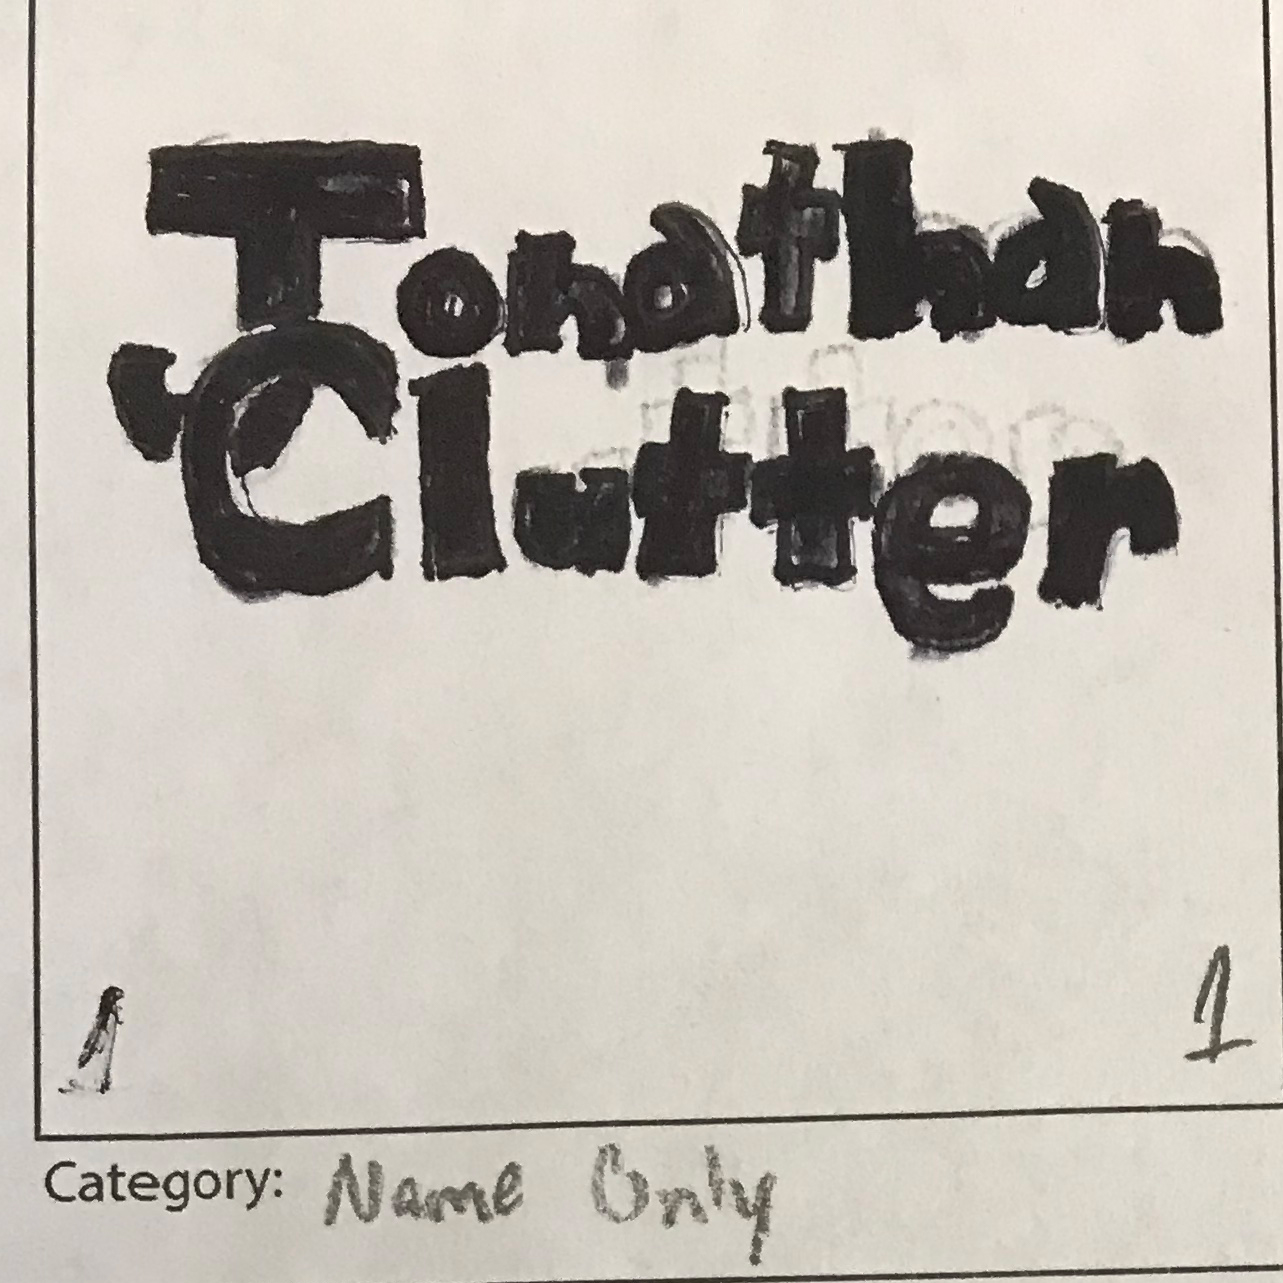 Jonathan
Clutter
1
1
Category: Name Only